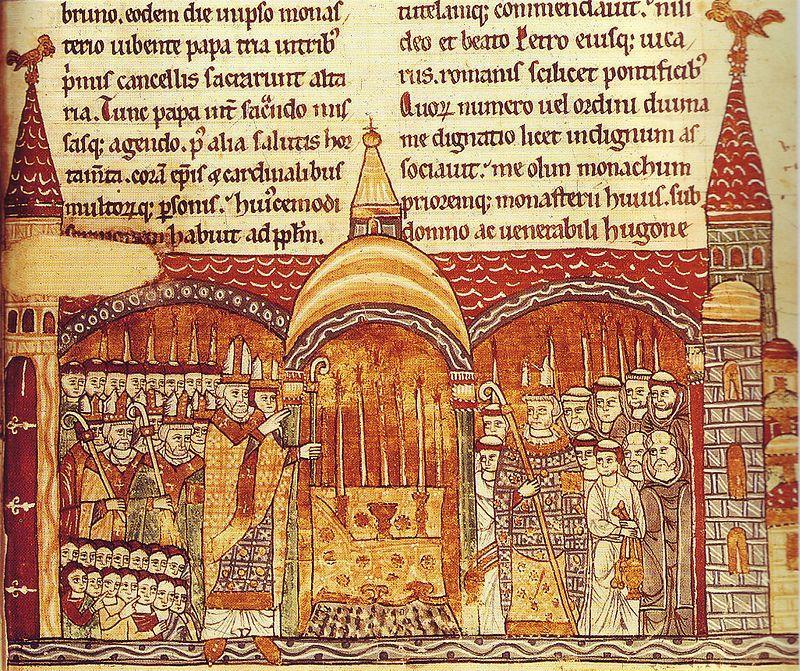 bruno. eodem die in ipso monas
terio iubente papa tria in tribꝰ
p̄mis cancellis sacrarunt alta
ria. Tunc papa int̄ sac̄ndo mis
sasq; agendo. p̾ alia salutis hor
tam̄ta. corā ep̄is & cardinalibus
multorꝝq; p̱sonis. huiꝰcemodi
habuit ad pp̄lm.
tutelamq; commendauit. nisi
deo et beato Petro eiusq; uica
riis. romanis scilicet pontificibꝰ
Quoꝝ numero uel ordini diuina
me dignatio licet indignum as
sociauit. me olim monachum
prioremq; monasterii huius. sub
domno ac uenerabili hugone